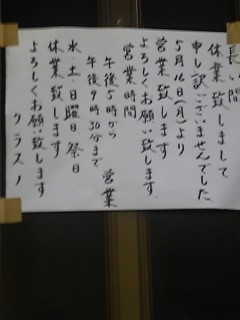 長い間
休業致しまして
申し訳ございませんでした。
5月16日(月)より
営業致します
よろしくお願い致します
営業時間
午後5時から 営業
午後9時30分まで
水・土・日曜日 祭日
休業致します
よろしくお願い致します
クラスノ